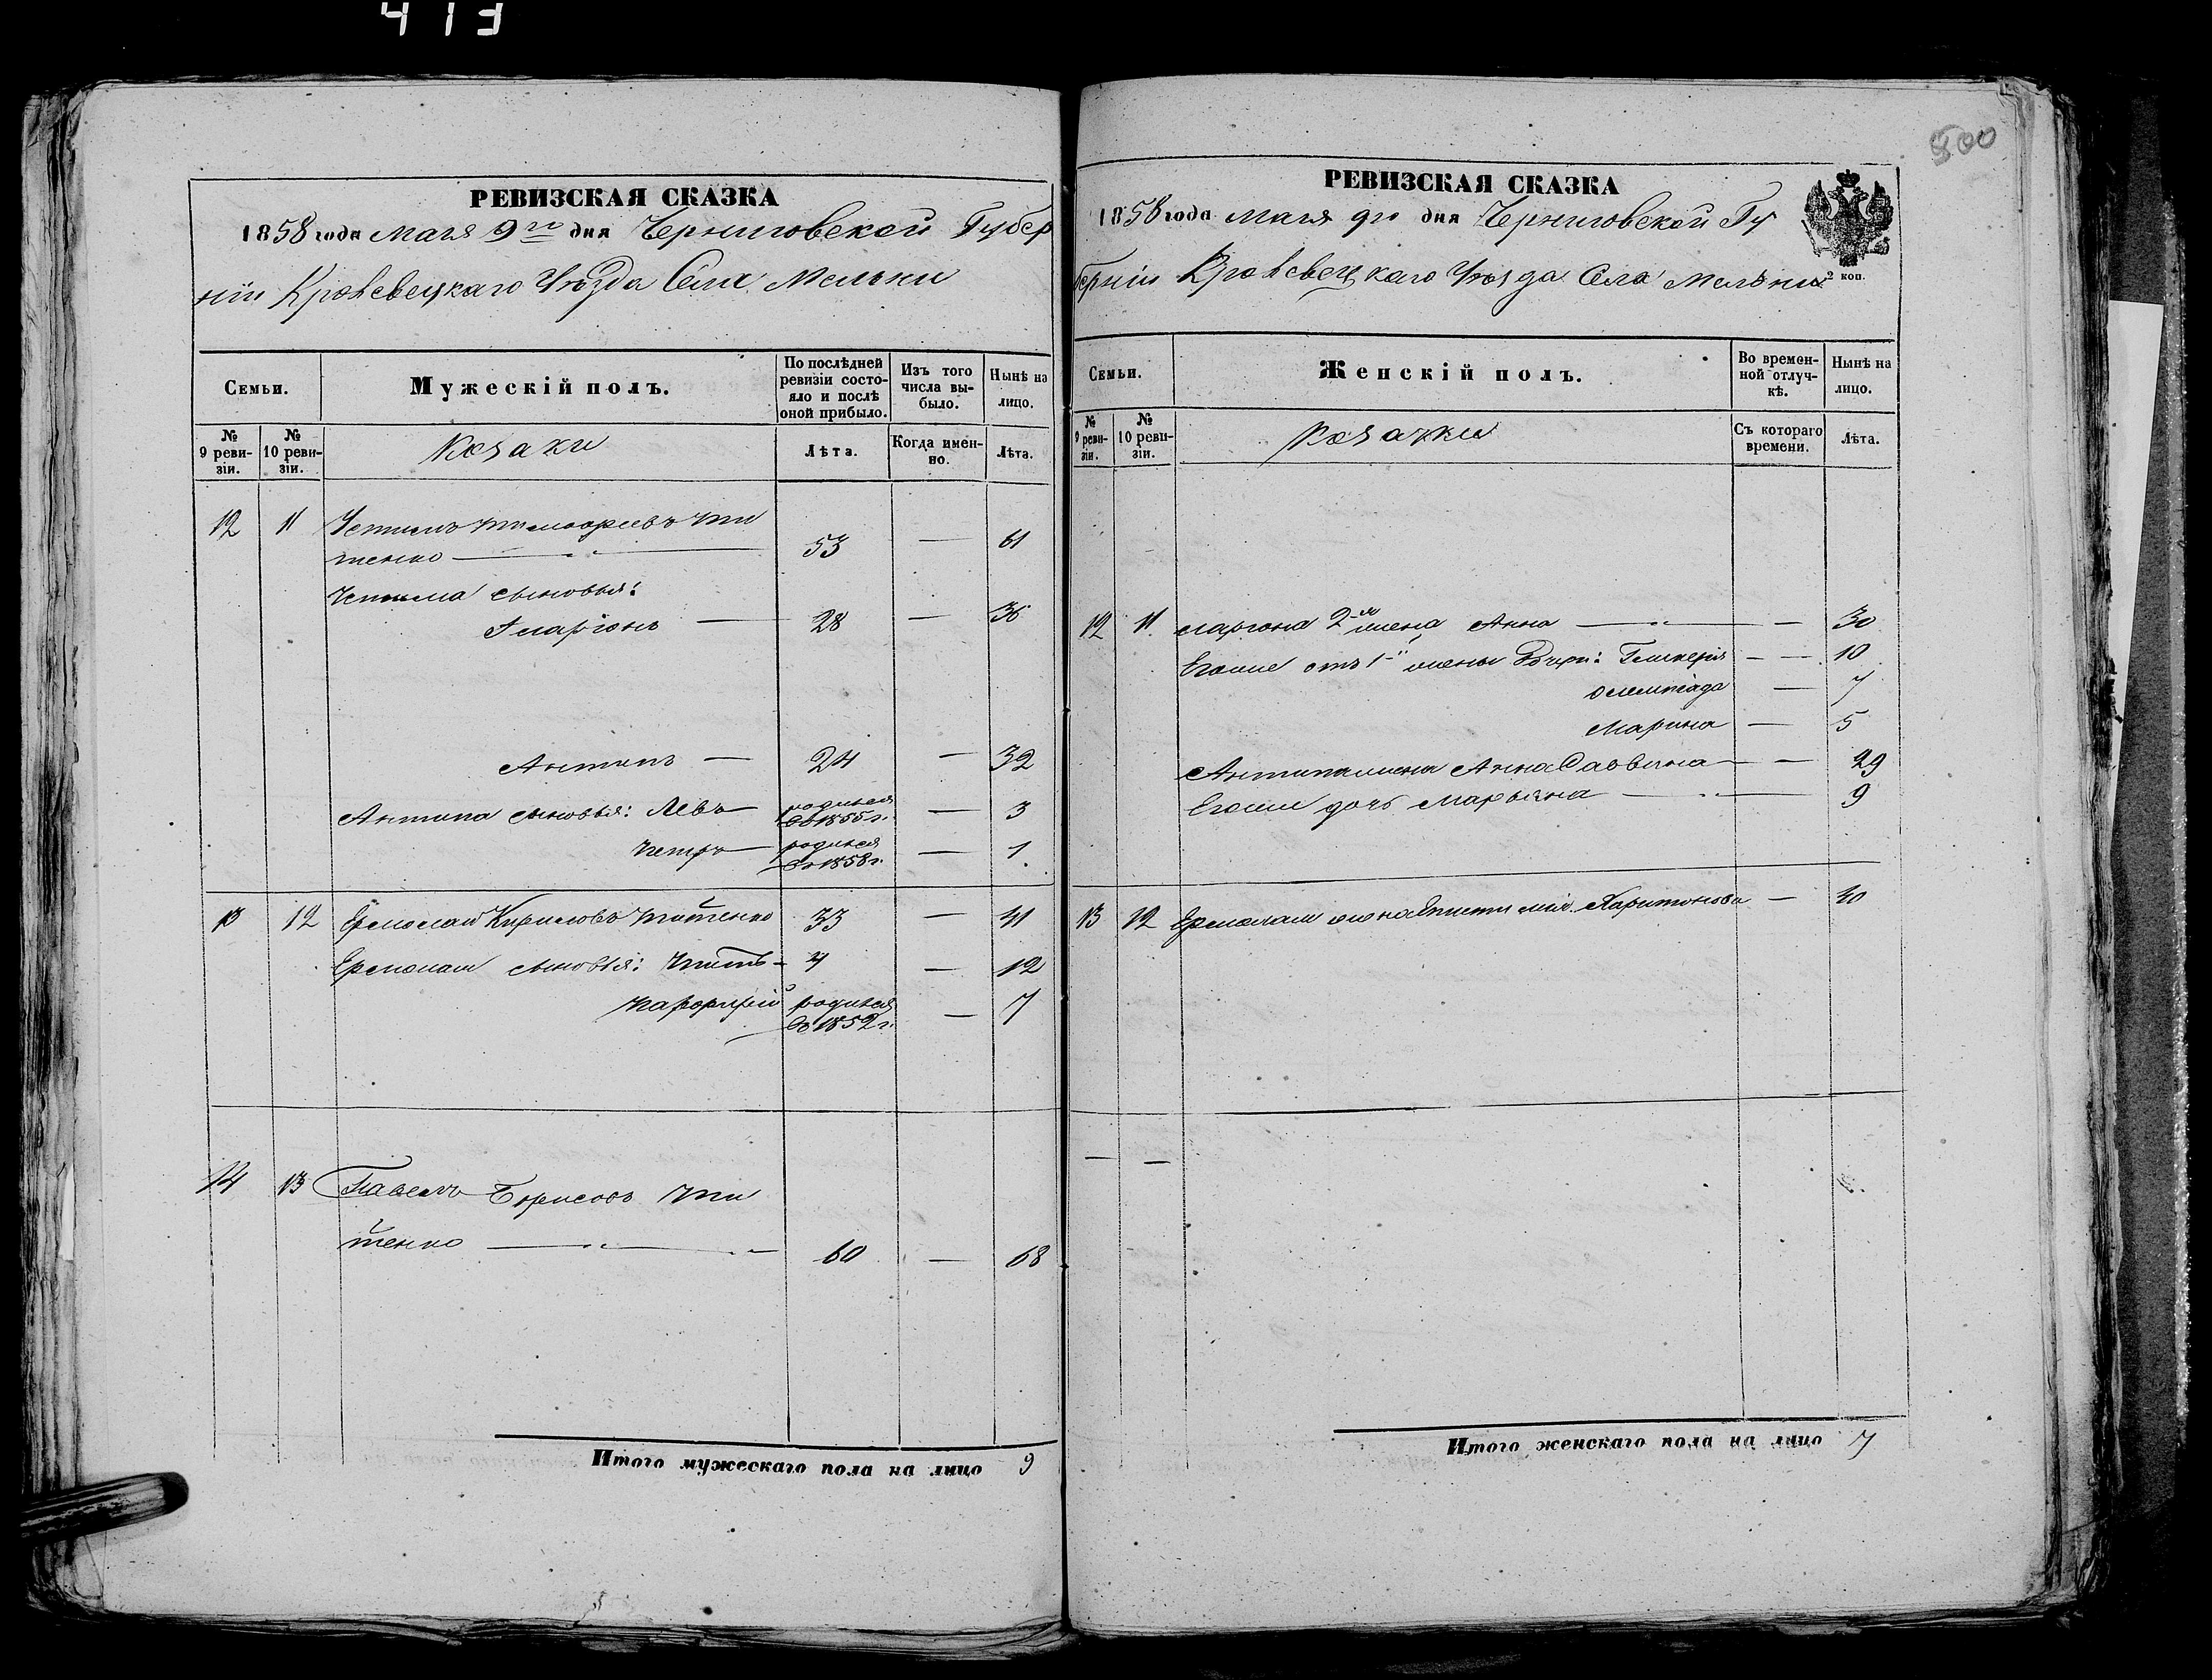 413
500
РЕВИЗСКАЯ СКАЗКА
1858 года Маія 9го дня Черниговской Губер
ніи Кролевецкаго Уѣзда Села Мельни
Семьи.
Мужескій полъ.
По послѣдней ревизіи состояло и послѣ оной прибыло.
Изъ того числа выбыло.
Нынѣ на лицо.
№ 9 ревизіи.
№ 10 ревизіи.
Козаки
Лѣта.
Когда именно.
Лѣта.
12 11 Устимъ Тимофѣевъ Ти
тенко 53 — 61
Устима сыновья:
Іларіонъ — 28 — 36
Антипъ — 24 — 32
Антипа сыновья: Левъ родился въ 1855 г. — 3
Петръ родился въ 1858 г. — 1
13 12 Ермолай Кириловъ Титенко 33 — 41
Ермолая сыновья: Титъ 4 — 12
Парфирій родился въ 1852 г. — 7
14 13 Павелъ Борисовъ Ти
тенко 60 — 68
Итого мужескаго пола на лицо 9
РЕВИЗСКАЯ СКАЗКА
1858 года Маія 9го дня Черниговской Гу
берніи Кролевецкаго Уѣзда Села Мельни
2 коп.
Семьи.
Женскій полъ.
Во временной отлучкѣ.
Нынѣ на лицо.
№ 9 ревизіи.
№ 10 ревизіи.
Козачки
Съ котораго времени.
Лѣта.
12 11 Ларіона 2я жена Анна — 30
Егоже отъ 1й жены дочери: Гликерія — 10
Олемпіада — 7
Марина — 5
Антипа жена Анна Саввина — 29
Егоже дочь Марьяна — 9
13 12 Ермолая жена Харитонова — 40
— —
Итого женскаго пола на лицо 7